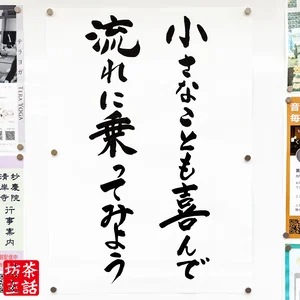 小さなことも喜んで
流れに乗ってみよう
テラヨガ
TERA YOGA
妙慶院
清岸寺
行事案内
音
毎
茶話
坊主